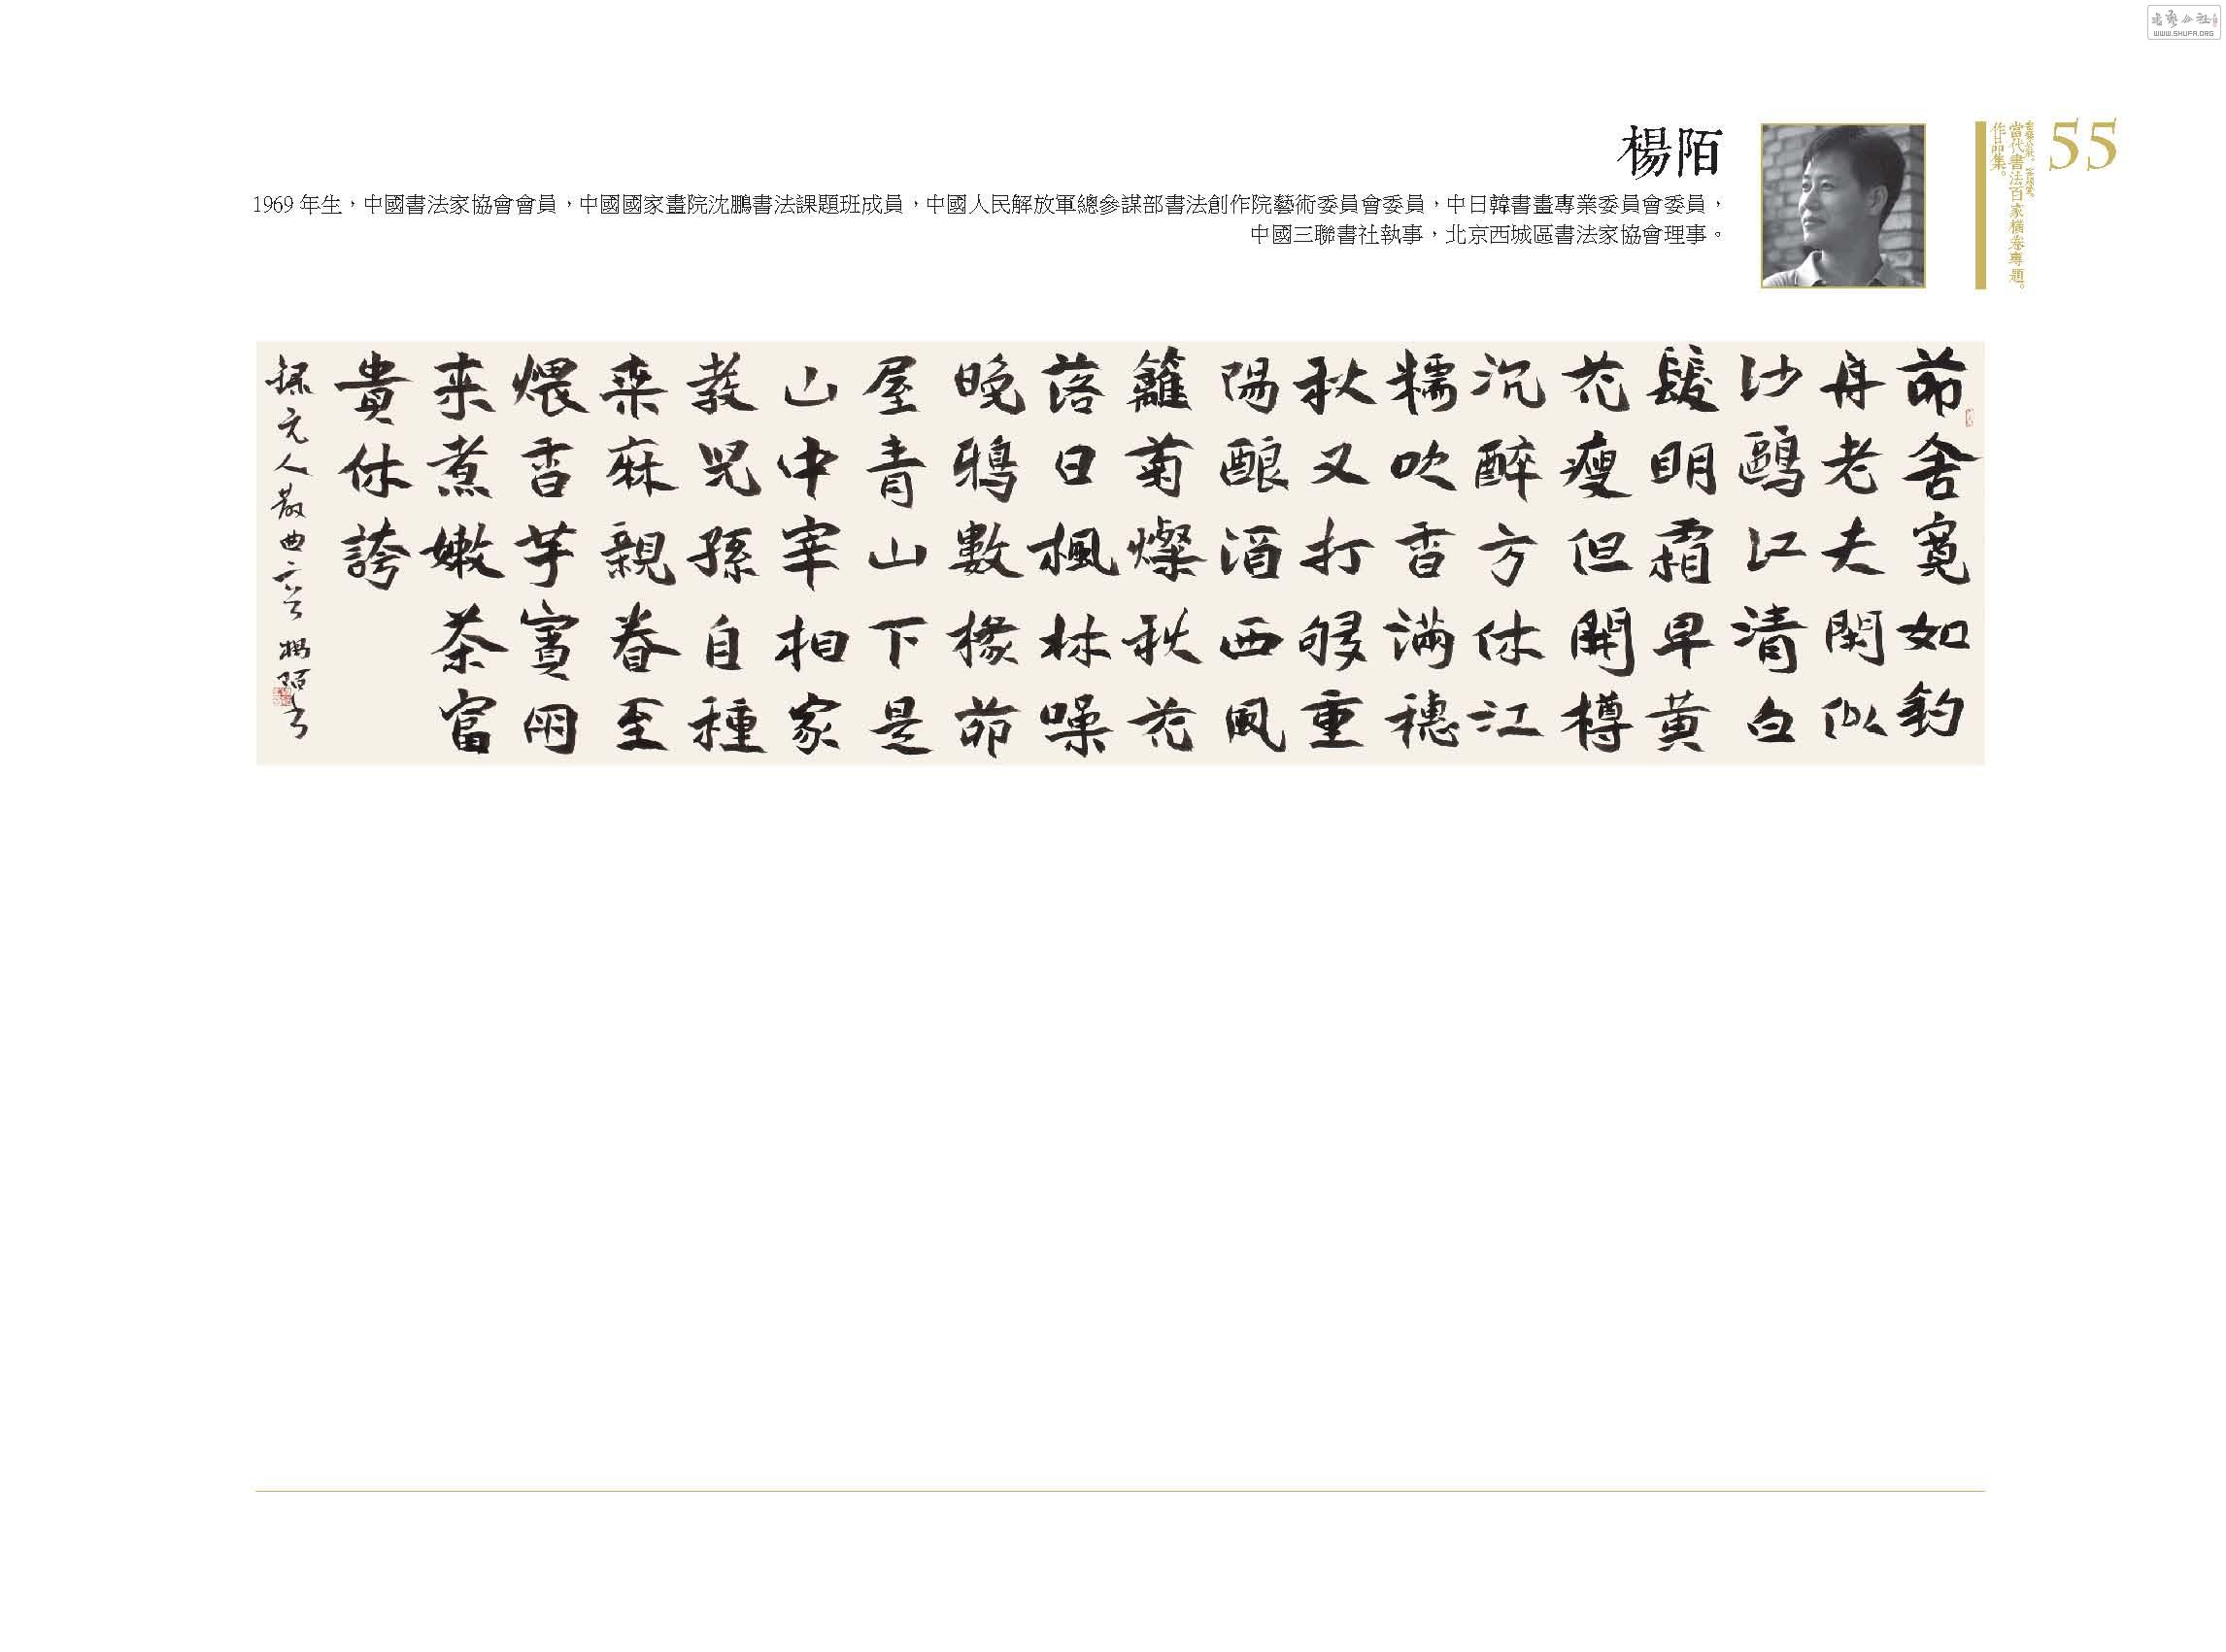 55
當代書法百家橫卷專題。
作品集。
楊陌
1969 年生，中國書法家協會會員，中國國家畫院沈鵬書法課題班成員，中國人民解放軍總參謀部書法創作院藝術委員會委員，中日韓書畫專業委員會委員，
中國三聯書社執事，北京西城區書法家協會理事。
茆舍寬如釣
舟老夫閑似
沙鷗江清白
髮明霜早黃
花瘦但開樽
沉醉方休江
糯吹香滿穗
秋又打够重
陽釀酒西風
籬菊燦秋花
落日楓林噪
晚鴉數椽茆
屋青山下是
山中宰相家
教兒孫自種
桒麻親眷至
煨香芋賓朋
来煮嫩茶富
貴休誇
錄元人散曲二首 楊陌書
WWW.SHUFA.ORG